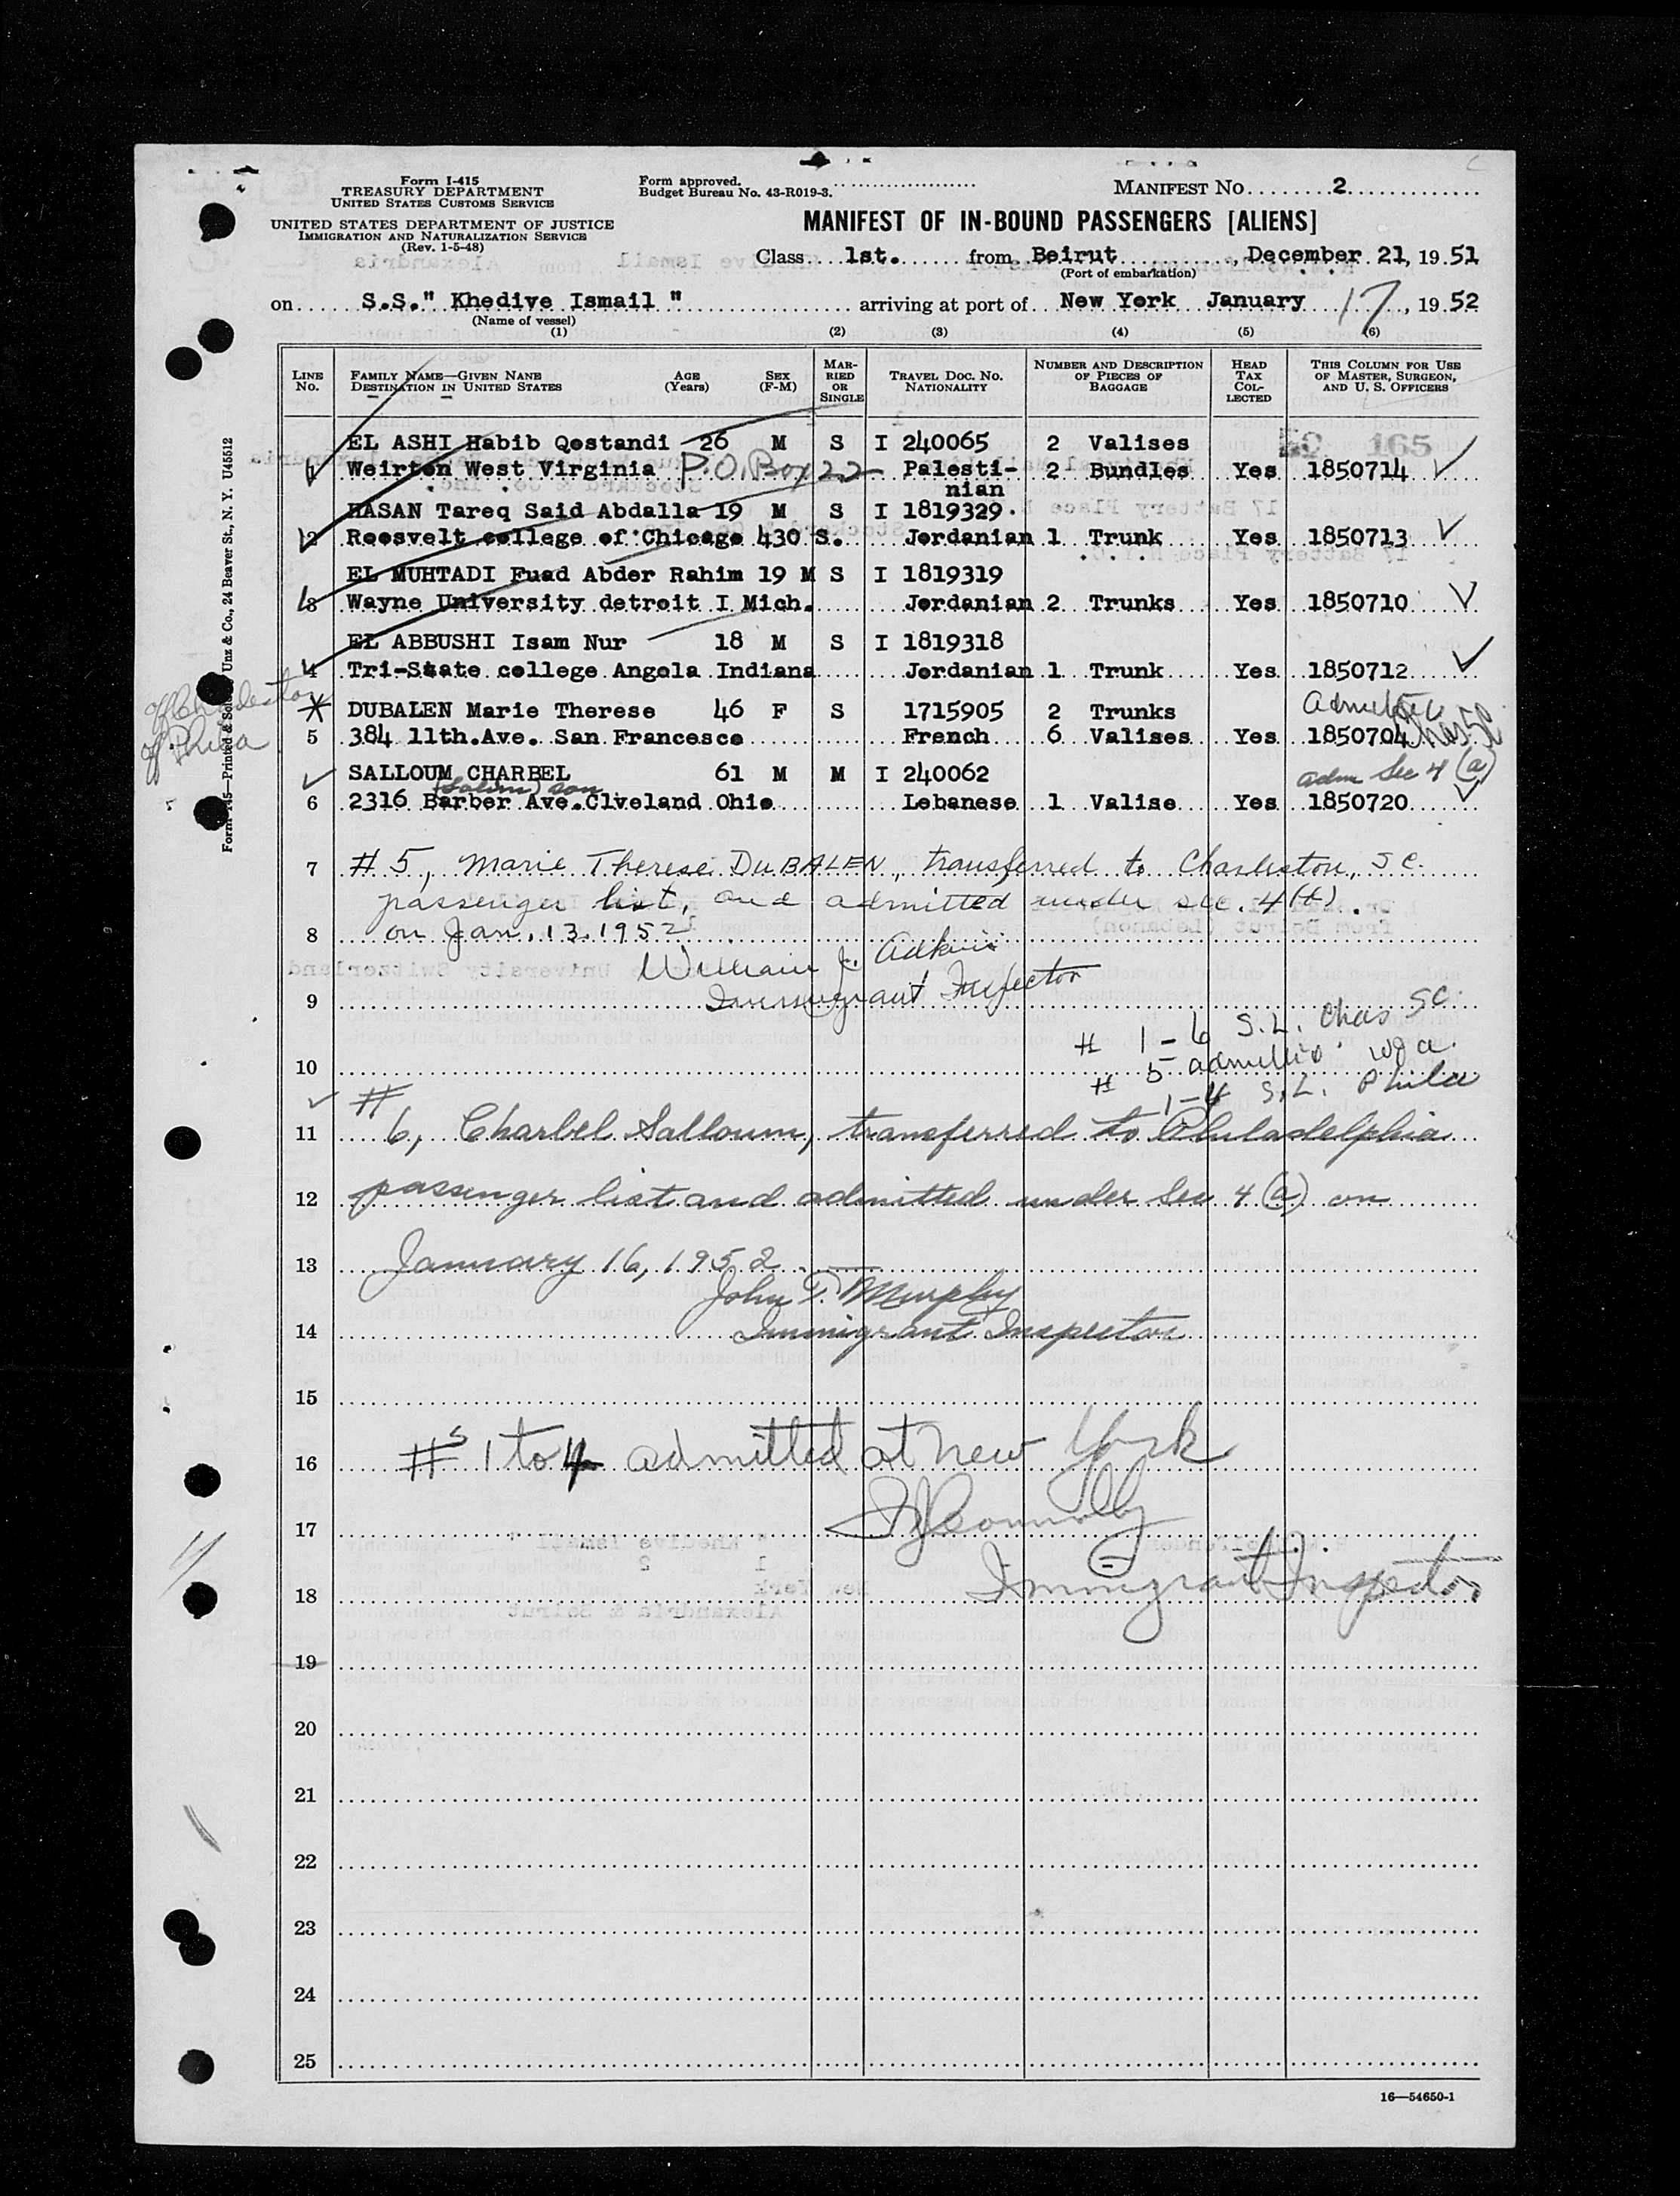 Form I-415
TREASURY DEPARTMENT
UNITED STATES CUSTOMS SERVICE
UNITED STATES DEPARTMENT OF JUSTICE
IMMIGRATION AND NATURALIZATION SERVICE
(Rev. 1-5-48)
Form approved.
Budget Bureau No. 43-R019-3.
MANIFEST NO. 2
MANIFEST OF IN-BOUND PASSENGERS [ALIENS]
Class 1st. from Beirut, December 21, 1951
(Port of embarkation)
on S.S." Khedive Ismail " arriving at port of New York January 17, 1952
(Name of vessel)
(1) (2) (3) (4) (5) (6)
LINE No. FAMILY NAME—GIVEN NAME DESTINATION IN UNITED STATES AGE (Years) SEX (F-M) MARRIED OR SINGLE TRAVEL DOC. NO. NATIONALITY NUMBER AND DESCRIPTION OF PIECES OF BAGGAGE HEAD TAX COLLECTED THIS COLUMN FOR USE OF MASTER, SURGEON, AND U. S. OFFICERS
165
EL ASHI Habib Qostandi 26 M S I 240065 2 Valises
1 Weirton West Virginia P.O. Box 22 Palesti-nian 2 Bundles Yes 1850714
HASAN Tareq Said Abdalla 19 M S I 1819329.
2 Roosvelt college of Chicago 430 S. Jordanian 1 Trunk Yes 1850713
EL MUHTADI Fuad Abder Rahim 19 M S I 1819319
3 Wayne University detroit I Mich. Jordanian 2 Trunks Yes 1850710
EL ABBUSHI Isam Nur 18 M S I 1819318
4 Tri-State college Angola Indiana Jordanian 1 Trunk Yes 1850712
of Charleston
DUBALEN Marie Therese 46 F S 1715905 2 Trunks Admitted
of Phila
5 384 11th.Ave. San Francesco French 6 Valises Yes 1850704
SALLOUM CHARBEL 61 M M I 240062 adm Sec 4 (a)
(Salim) son
6 2316 Barber Ave.Clveland Ohio Lebanese 1 Valise Yes 1850720
7 #5, Marie Therese DuBALEN, transferred to Charleston, SC.
passenger list, and admitted under sec. 4(f).
8 on Jan. 13. 1952
William J. Adkins
9 Immigrant Inspector
# 1-6 S.L. Chas SC.
10 # 5 admitted WJA.
# 1-4 S.L. Phila
11 6, Charbel Salloum, transferred to Philadelphia
12 passenger list and admitted under Sec 4 (a) on
13 January 16, 1952.
John P. Murphy
14 Immigrant Inspector
15
16 #s 1 to 4 admitted at New York
17 Connolly
18 Immigrant Inspector
19
20
21
22
23
24
25
16—54650-1
Form I-415—Printed & Sold by Unz & Co., 24 Beaver St., N. Y. U45512